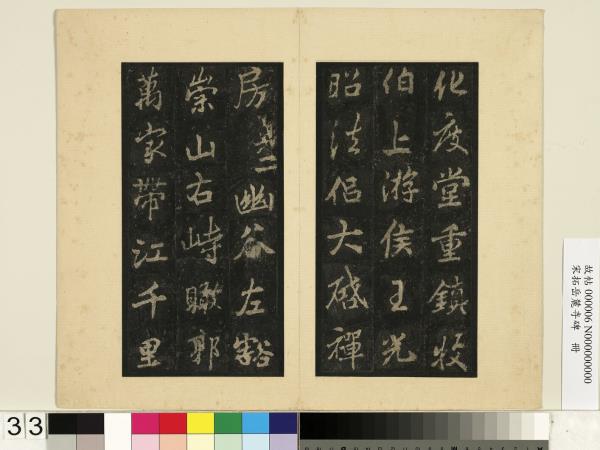 化度堂重鎮牧
伯上游侯王光
昭法侶大啟禪
房其二幽谷左豁
崇山右峙瞰郭
萬家帶江千里
故帖 000006 N000000000
宋拓岳麓寺碑 冊
33